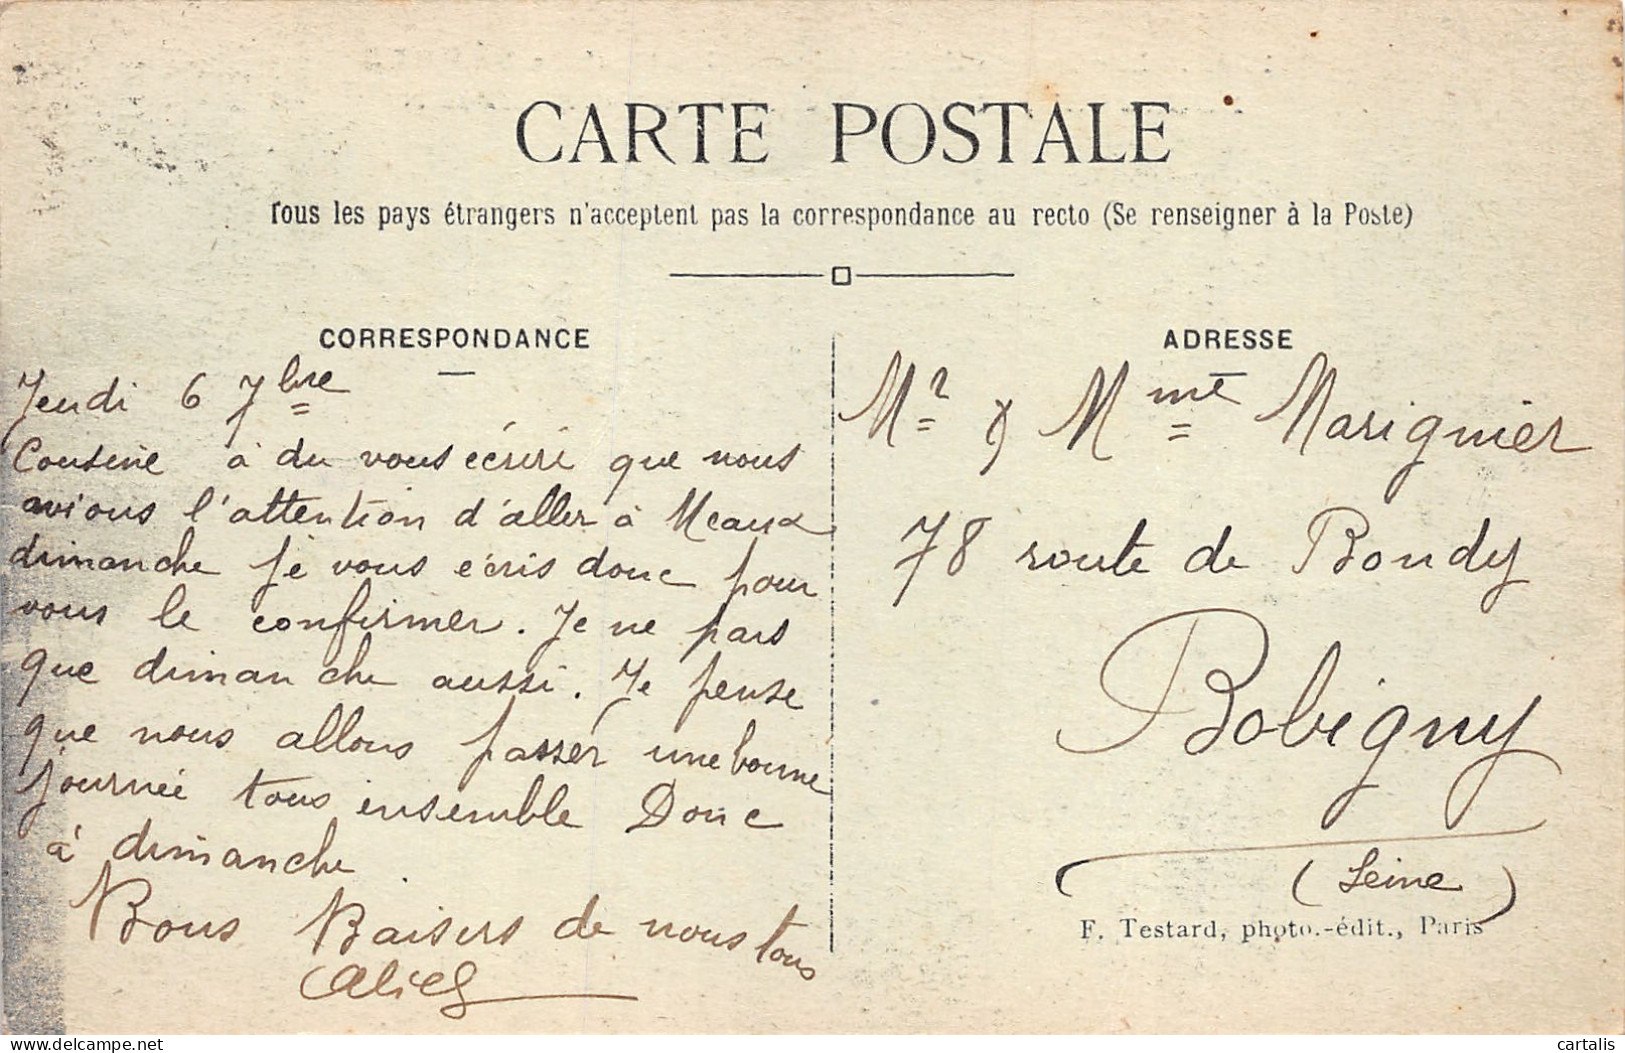 CARTE POSTALE
Tous les pays étrangers n'acceptent pas la correspondance au recto (Se renseigner à la Poste)
CORRESPONDANCE
Jeudi 6 7bre
Cousine a du vous écrire que nous
avions l'attention d'aller à Meaux
dimanche je vous écris donc pour
vous le confirmer. Je ne pars
que dimanche aussi. Je pense
que nous allons passer une bonne
journée tous ensemble Donc
à dimanche
Bons Baisers de nous tous
Alice
ADRESSE
Mr & Mme Marignier
78 route de Bondy
Bobigny
(Seine)
F. Testard, photo.-édit., Paris
delcampe.net
cartalis